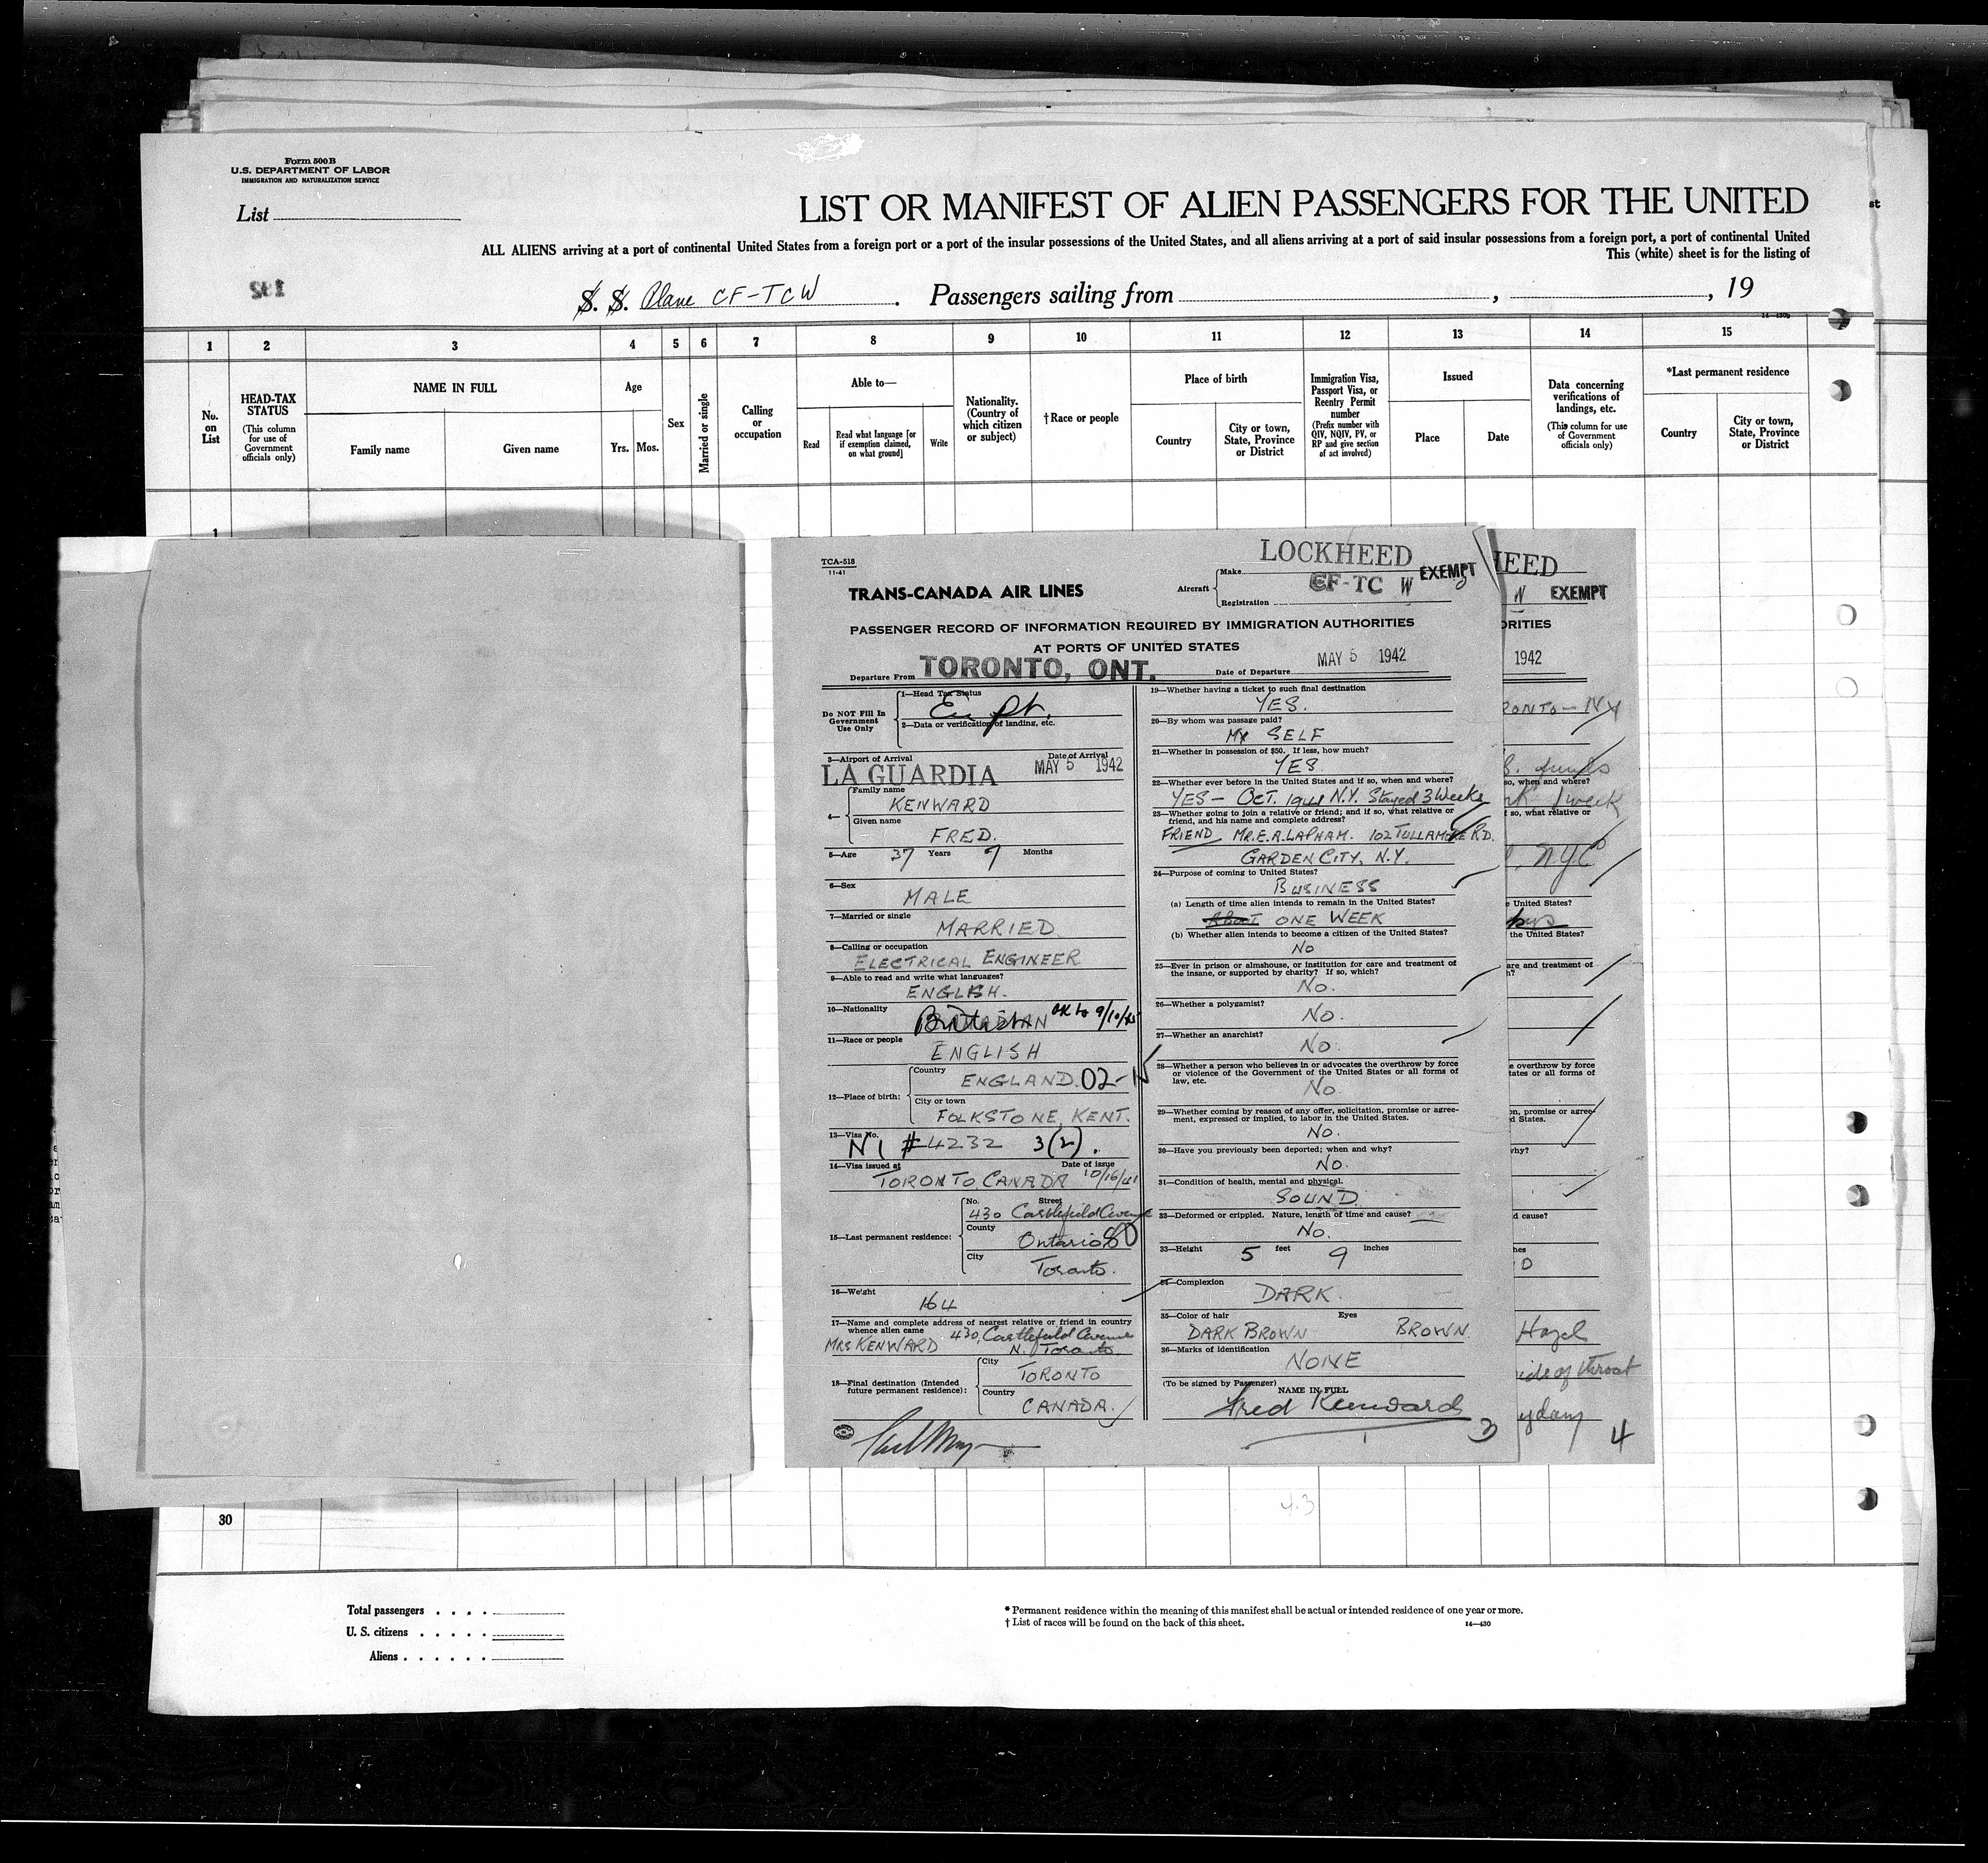 Form 500B
U.S. DEPARTMENT OF LABOR
IMMIGRATION AND NATURALIZATION SERVICE
List
LIST OR MANIFEST OF ALIEN PASSENGERS FOR THE UNITED
ALL ALIENS arriving at a port of continental United States from a foreign port or a port of the insular possessions of the United States, and all aliens arriving at a port of said insular possessions from a foreign port, a port of continental United
This (white) sheet is for the listing of
S. S. Plane CF-TCW . Passengers sailing from , , 19
1 2 3 4 5 6 7 8 9 10 11 12 13 14 15
No. on List
HEAD-TAX STATUS
(This column for use of Government officials only)
NAME IN FULL
Family name
Given name
Age
Yrs. Mos.
Sex
Married or single
Calling or occupation
Able to—
Read
Read what language [or if exemption claimed, on what ground]
Write
Nationality. (Country of which citizen or subject)
†Race or people
Place of birth
Country
City or town, State, Province or District
Immigration Visa, Passport Visa, or Reentry Permit number
(Prefix number with QIV, NQIV, PV, or RP and give section of act involved)
Issued
Place
Date
Data concerning verifications of landings, etc.
(This column for use of Government officials only)
*Last permanent residence
Country
City or town, State, Province or District
1
TCA-518
11-41
TRANS-CANADA AIR LINES
Aircraft
Make LOCKHEED
Registration CF-TC W
EXEMPT
PASSENGER RECORD OF INFORMATION REQUIRED BY IMMIGRATION AUTHORITIES
AT PORTS OF UNITED STATES
Departure From TORONTO, ONT.
Date of Departure MAY 5 1942
Do NOT Fill In Government Use Only
1—Head Tax Status
2—Data or verification of landing, etc.
3—Airport of Arrival LA GUARDIA
Date of Arrival MAY 5 1942
4—
Family name KENWARD
Given name FRED.
5—Age 37 Years 7 Months
6—Sex MALE
7—Married or single MARRIED
8—Calling or occupation
ELECTRICAL ENGINEER
9—Able to read and write what languages?
ENGLISH.
10—Nationality British CANADIAN OK to 9/10/45
11—Race or people
ENGLISH
12—Place of birth:
Country ENGLAND. 02-15
City or town
FOLKSTONE, KENT.
13—Visa No.
NI #4232 3(2).
14—Visa issued at TORONTO, CANADA
Date of issue 10/16/41
15—Last permanent residence:
No. Street
430 Castlefield Avenue
County Ontario 60
City Toronto.
16—Weight 164
17—Name and complete address of nearest relative or friend in country whence alien came
MRS KENWARD 430, Castlefield Avenue
N. Toronto.
18—Final destination (Intended future permanent residence):
City TORONTO
Country CANADA.
19—Whether having a ticket to such final destination
YES.
20—By whom was passage paid?
MY SELF
21—Whether in possession of $50. If less, how much?
YES
22—Whether ever before in the United States and if so, when and where?
YES - OCT. 1941 N.Y. Stayed 3 Weeks
23—Whether going to join a relative or friend; and if so, what relative or friend, and his name and complete address?
FRIEND MR. E.A. LAPHAM. 102 TULLAMORE RD.
GARDEN CITY, N.Y.
24—Purpose of coming to United States?
BUSINESS
(a) Length of time alien intends to remain in the United States?
ONE WEEK
(b) Whether alien intends to become a citizen of the United States?
NO
25—Ever in prison or almshouse, or institution for care and treatment of the insane, or supported by charity? If so, which?
No.
26—Whether a polygamist?
No.
27—Whether an anarchist?
No
28—Whether a person who believes in or advocates the overthrow by force or violence of the Government of the United States or all forms of law, etc.
No.
29—Whether coming by reason of any offer, solicitation, promise or agreement, expressed or implied, to labor in the United States.
No.
30—Have you previously been deported; when and why?
No.
31—Condition of health, mental and physical.
SOUND.
32—Deformed or crippled. Nature, length of time and cause?
No.
33—Height 5 feet 9 inches
34—Complexion
DARK.
35—Color of hair Eyes
DARK BROWN BROWN
36—Marks of identification
NONE
(To be signed by Passenger)
NAME IN FULL
Fred Kenward
3
EED
EXEMPT
ORITIES
1942
RONTO - NY
so, when and where?
1 week
f so, what relative or
N.Y.C
e United States?
the United States?
are and treatment of
e overthrow by force
tates or all forms of
on, promise or agree-
d States.
why?
d cause?
hes
Hazel
side of throat
4
30
4.3
Total passengers
U. S. citizens
Aliens
* Permanent residence within the meaning of this manifest shall be actual or intended residence of one year or more.
† List of races will be found on the back of this sheet.
14—430